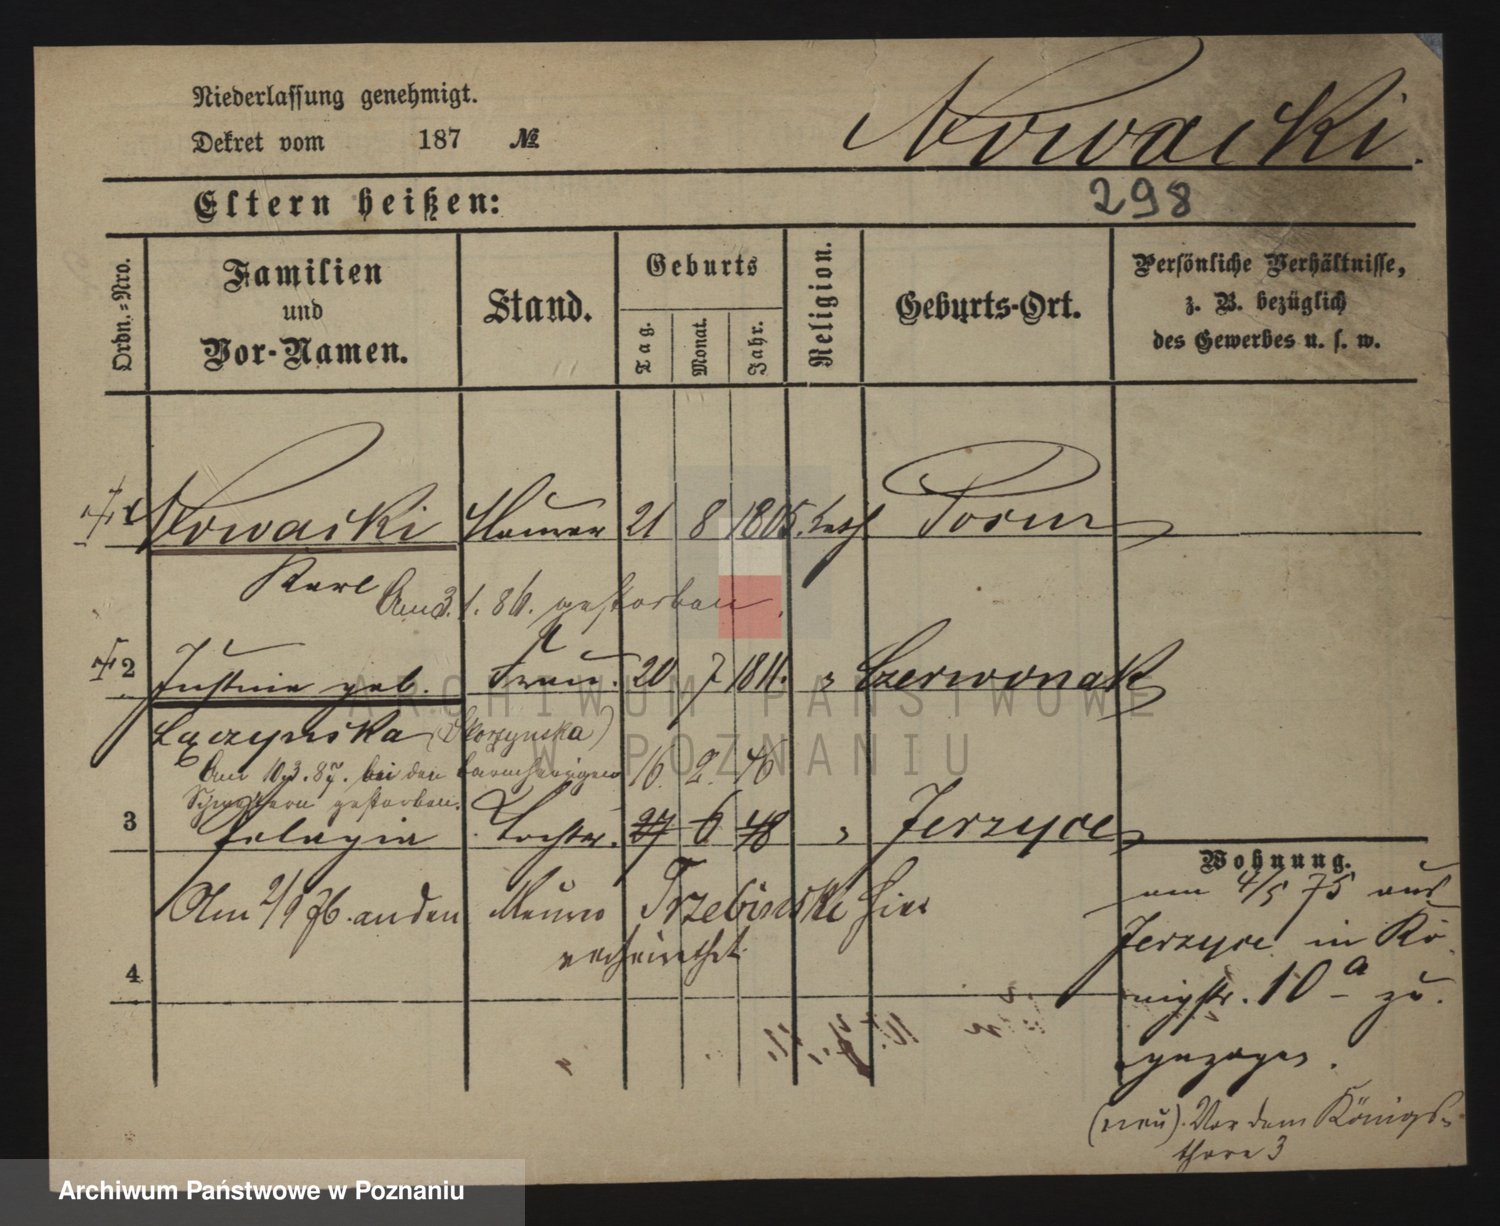 Niederlassung genehmigt.
Dekret vom 187 №
Nowacki.
Eltern heißen:
298
Ordn.=Nro.
Familien
und
Vor-Namen.
Stand.
Geburts
Tag.
Monat.
Jahr.
Religion.
Geburts-Ort.
Persönliche Verhältnisse,
z. B. bezüglich
des Gewerbes u. s. w.
1 Nowacki Maurer 21 8 1805. kath Posen
Karl Am 3. 1. 86. gestorben.
2 Justine geb. Frau. 20 7 1811. " Czerwonak
Łączyńska (Skorzynska)
Am 10.3.87. bei den barmherzigen 16. 2. 46
Schwestern gestorben.
3 Pelagia Tochter. 27 6 48 " Jerzyce
Wohnung.
Am 2/9 76. an den Maurer Trzebinski hier
verheirathet
4
am 4/5 75 aus
Jerzyce in Kö-
nigstr. 10 a zu-
gezogen.
(neu). Vor dem Königs-
thore 3
ARCHIWUM PAŃSTWOWE
W POZNANIU
Archiwum Państwowe w Poznaniu